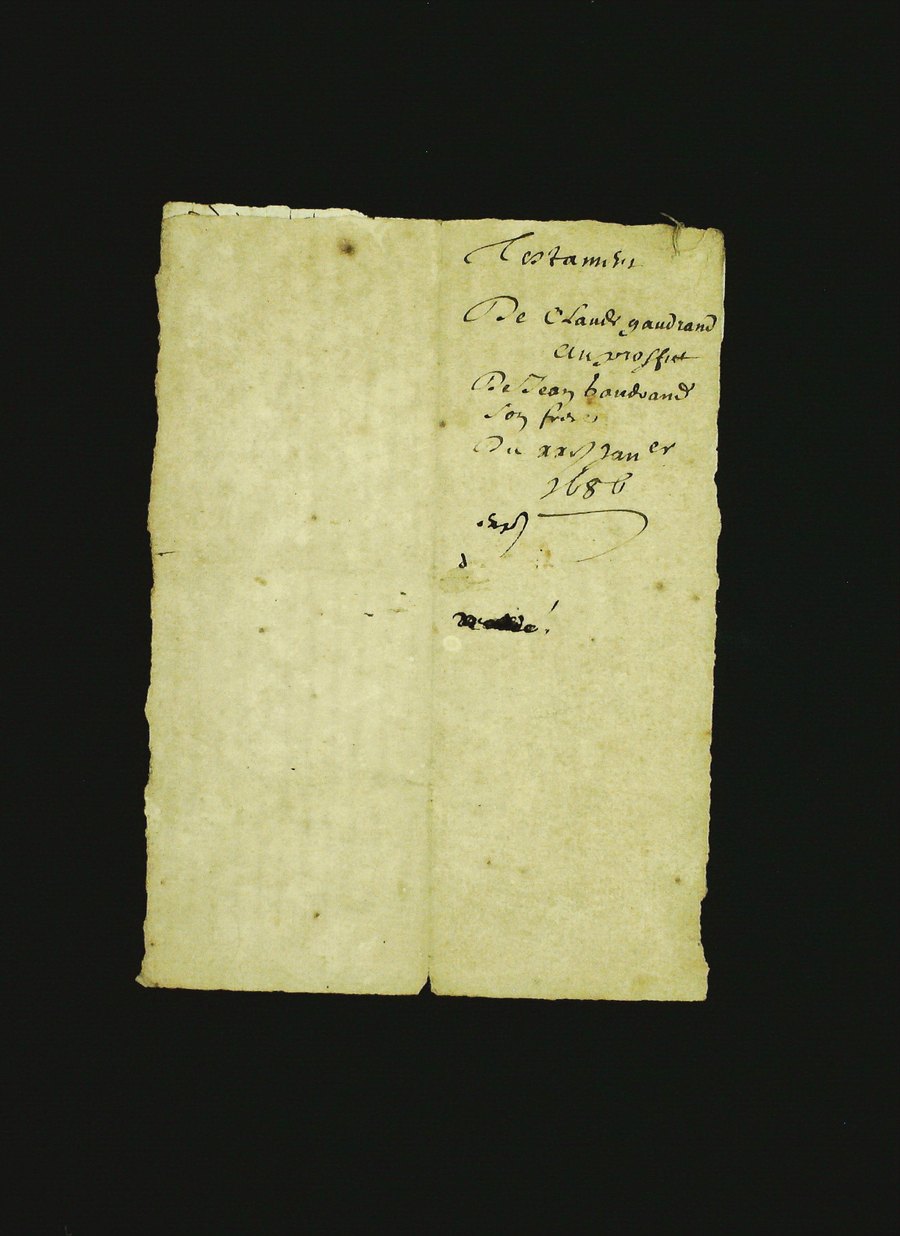 Testament
De Claude gaudrand
au proffict
De Jean baudrand
son frere
Du Janer
1686